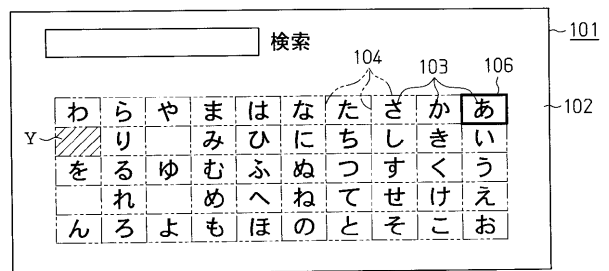 検索
101
104
103
106
102
わ ら や ま は な た さ か あ
Y り み ひ に ち し き い
を る ゆ む ふ ぬ つ す く う
れ め へ ね て せ け え
ん ろ よ も ほ の と そ こ お